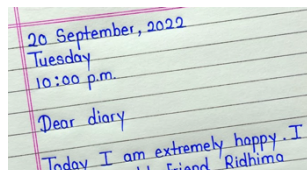 20 September, 2022
Tuesday
10:00 p.m.
Dear diary
Today I am extremely happy. I
friend Ridhima